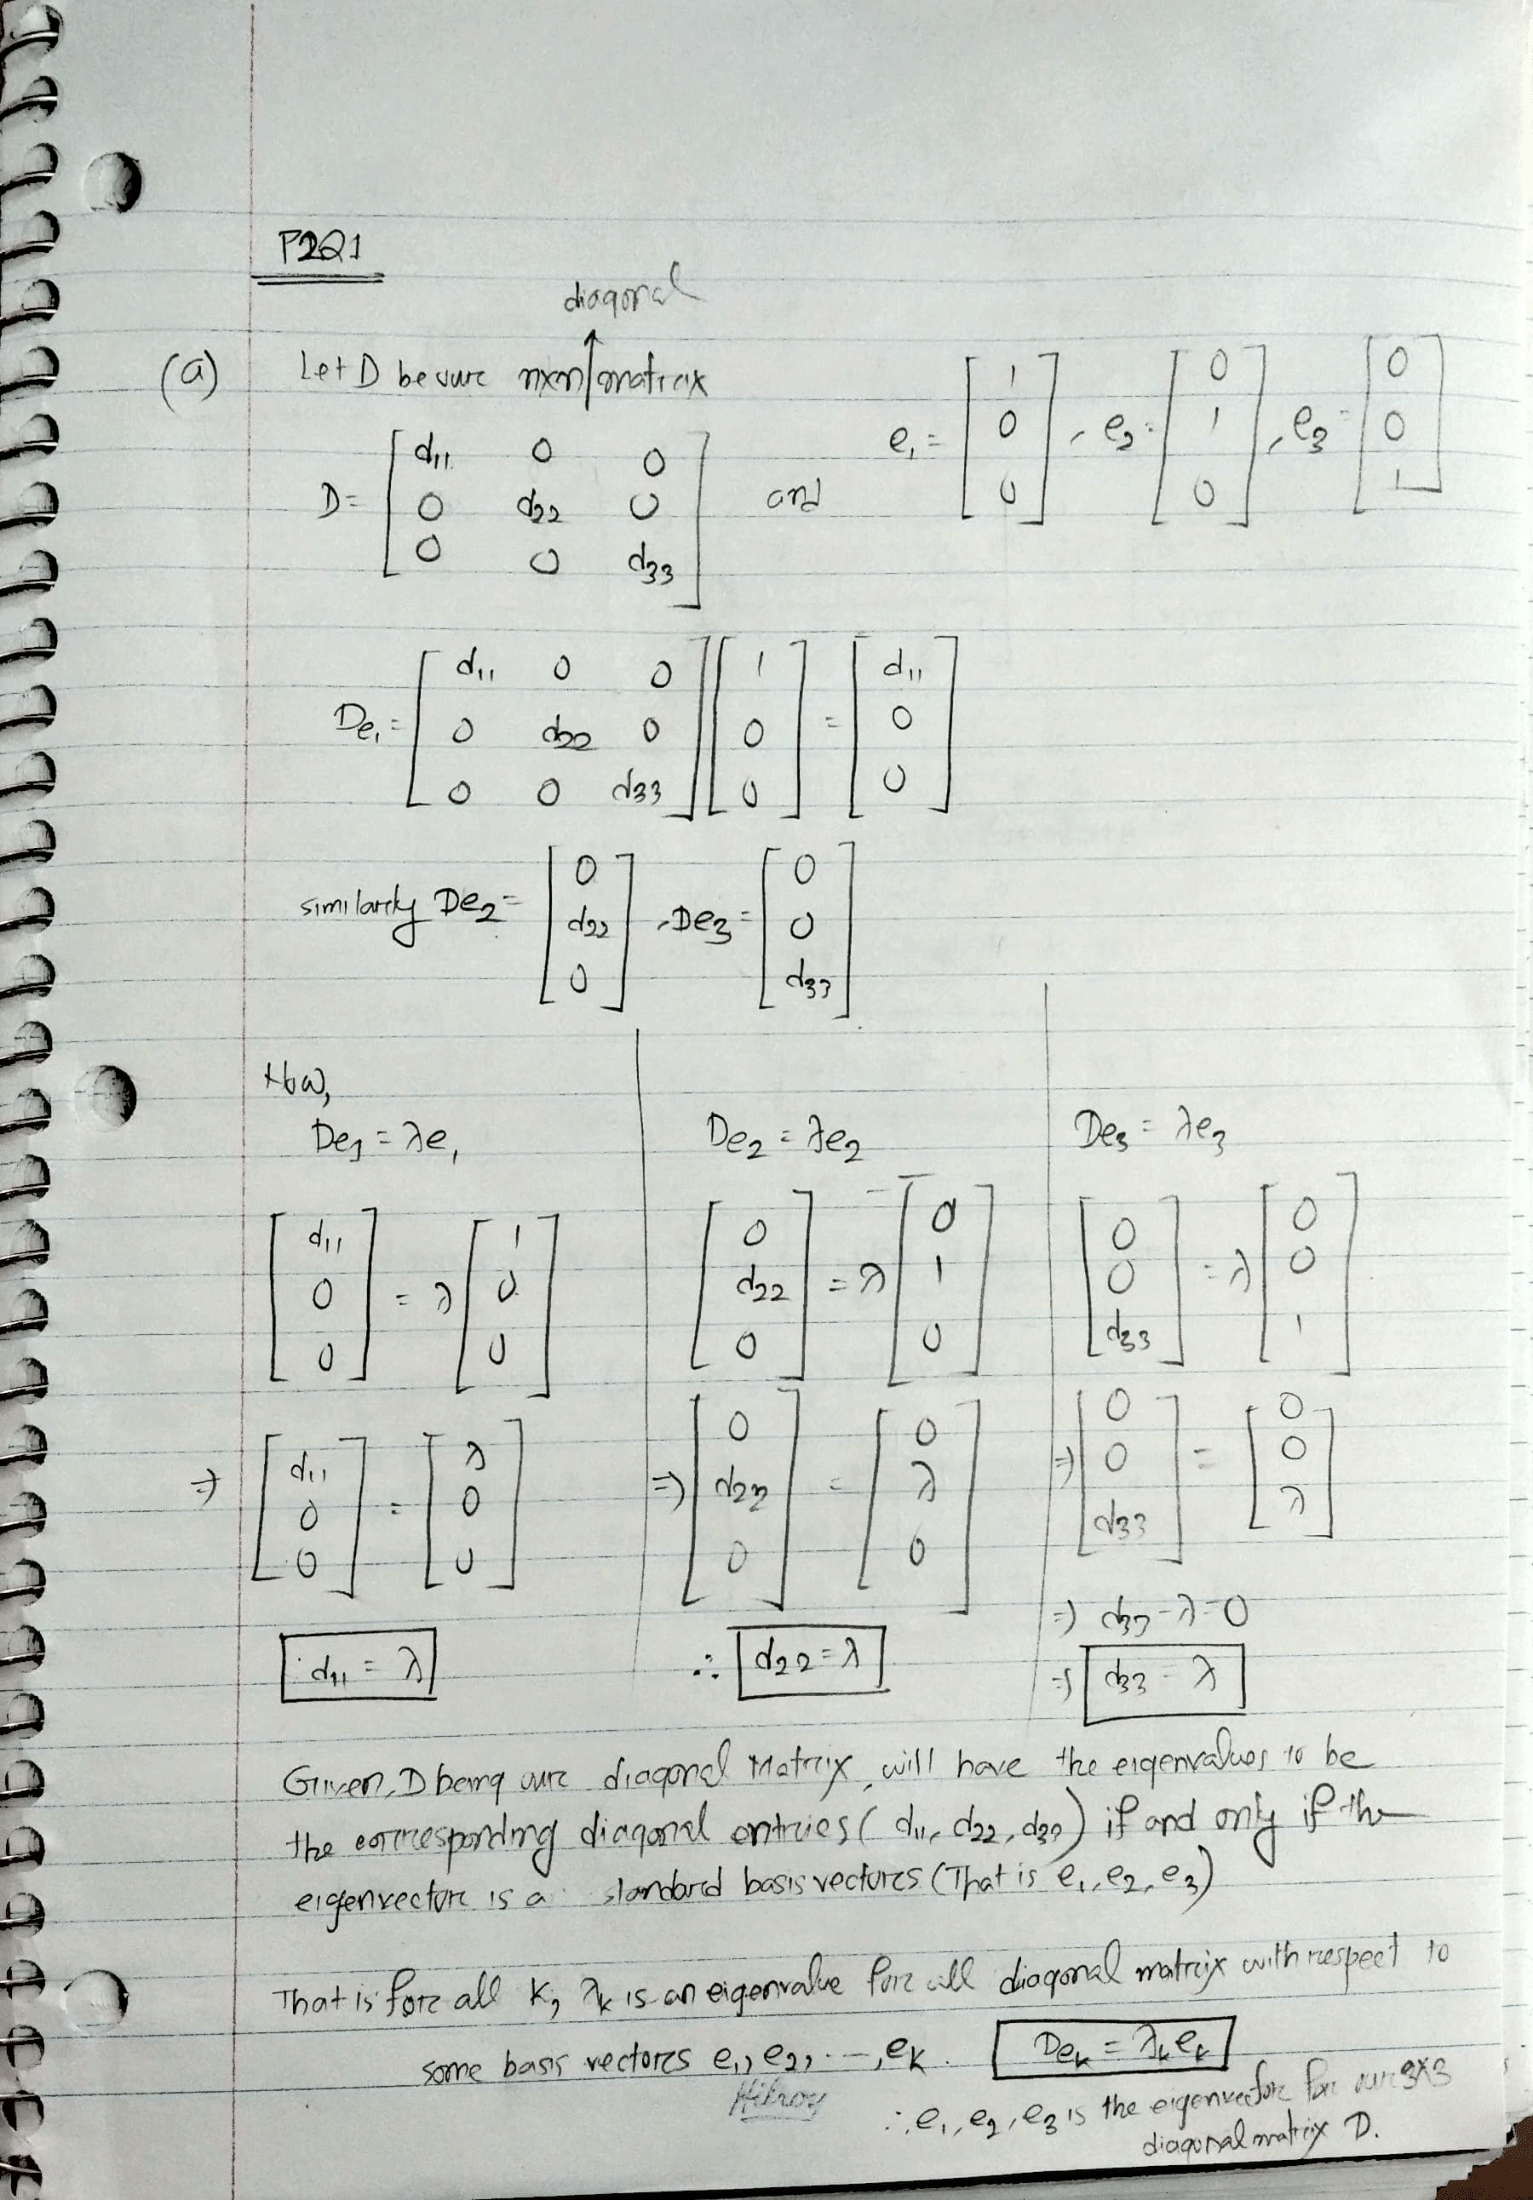 P2Q1
diagonal
(a) Let D be our nxn matrix
D = [ d11 0 0 ; 0 d22 0 ; 0 0 d33 ] and e1 = [ 1 ; 0 ; 0 ], e2 = [ 0 ; 1 ; 0 ], e3 = [ 0 ; 0 ; 1 ]
De1 = [ d11 0 0 ; 0 d22 0 ; 0 0 d33 ] [ 1 ; 0 ; 0 ] = [ d11 ; 0 ; 0 ]
similarly De2 = [ 0 ; d22 ; 0 ], De3 = [ 0 ; 0 ; d33 ]
Now,
De1 = λe1
[ d11 ; 0 ; 0 ] = λ [ 1 ; 0 ; 0 ]
⇒ [ d11 ; 0 ; 0 ] = [ λ ; 0 ; 0 ]
d11 = λ
De2 = λe2
[ 0 ; d22 ; 0 ] = λ [ 0 ; 1 ; 0 ]
⇒ [ 0 ; d22 ; 0 ] = [ 0 ; λ ; 0 ]
∴ d22 = λ
De3 = λe3
[ 0 ; 0 ; d33 ] = λ [ 0 ; 0 ; 1 ]
⇒ [ 0 ; 0 ; d33 ] = [ 0 ; 0 ; λ ]
⇒ d33 - λ = 0
⇒ d33 = λ
Given, D being our diagonal Matrix, will have the eigenvalues to be
the corresponding diagonal entries ( d11, d22, d33 ) if and only if the
eigenvector is a standard basis vectors (That is e1, e2, e3)
That is for all k, λk is an eigenvalue for all diagonal matrix with respect to
some basis vectors e1, e2, ---, ek. Dek = λkek
Hilroy
∴ e1, e2, e3 is the eigenvector for our 3x3
diagonal matrix D.